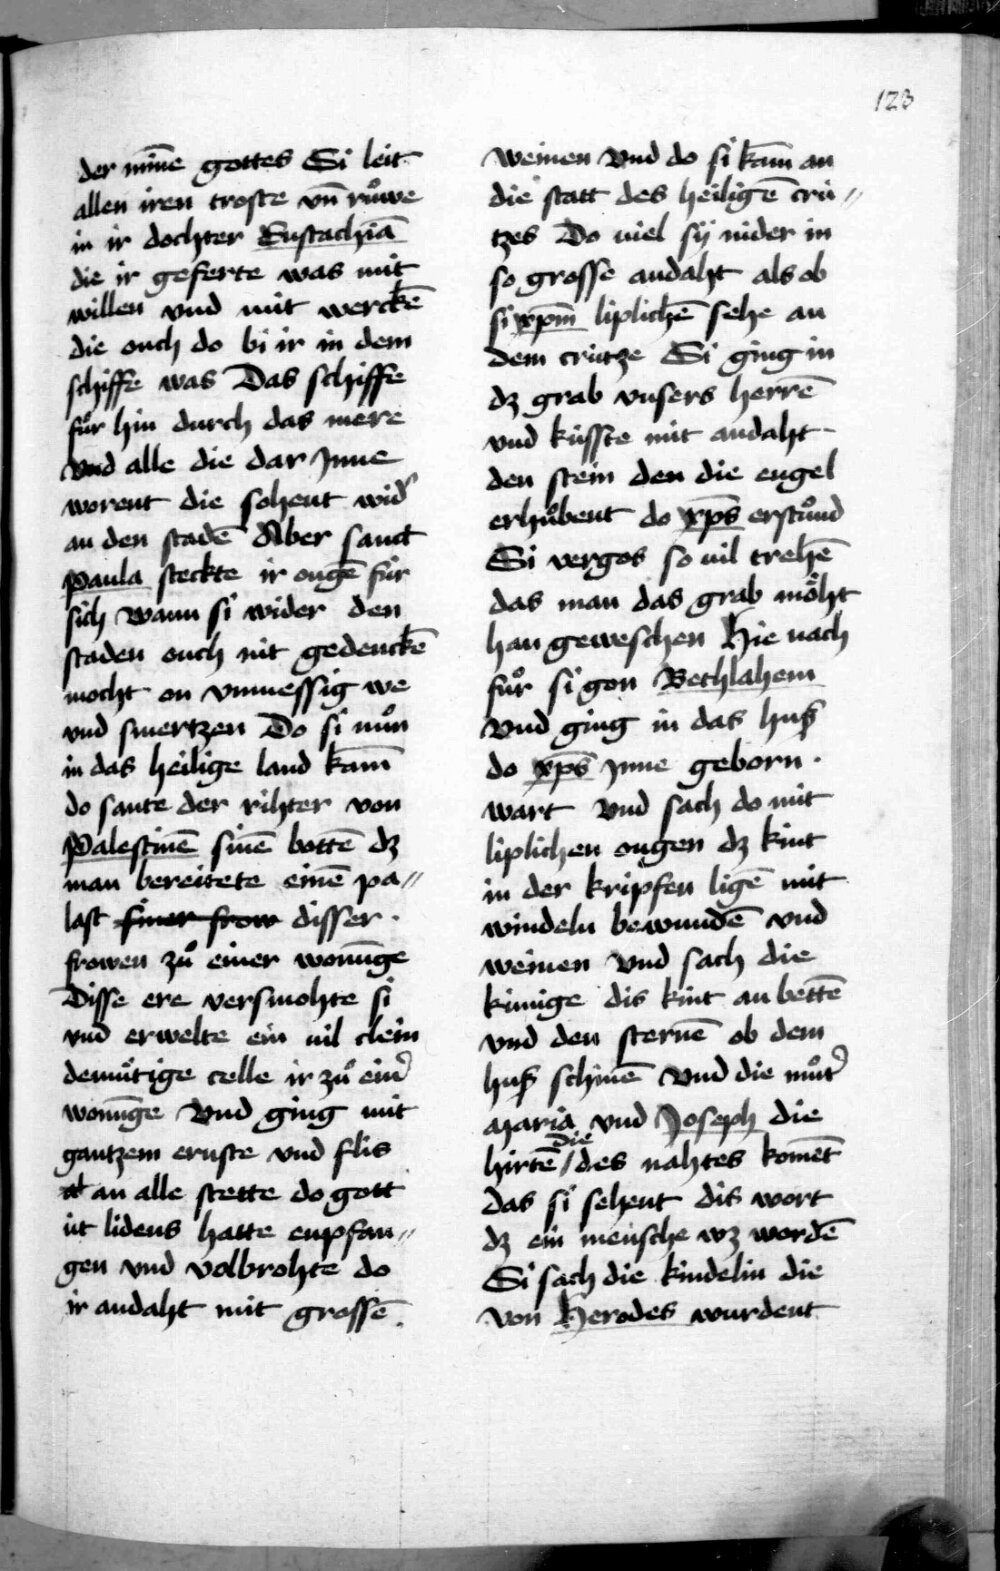 123
der mīne gottes Si leit
allen iren troste vn̄ růwe
in ir dochter Eustachiā
die ir geferte was mit
willen vnd mit werckē
die ouch do bi ir in dem
schiffe was Das schiffe
fůr hin durch das mere
vnd alle die dar Jnne
worent die sohent wid̕
an den stadē Aber sanct
Paula steckte ir ougē für
sich Wann si wider den
staden ouch nit gedenckē
mocht on vnmessig we
vnd smertzen Do si nůn
in das heilige land kam̄
do sante der rihter von
Palestinē sinē bottē dz
man bereitete einē pa〃
last ~~siner frow~~ disser ·
frowen zů einer wonūge
Disse ere versmohte si
vnd erwelte ein vil clein
demůtige celle ir zů ein̕
wonūge Vnd ging mit
gantzem ernste vnd flis
an alle stette do gott
üt lidens hatte enpfan〃
gen vnd volbrohte do
ir andaht mit grossē
weinen Vnd do si kam̄ an
die statt des heiligē crü〃
tzes Do viel sÿ nider in
so grosse andaht als ob
si xp̄m liplichē sehe an
dem crütze Si ging in
dz grab vnsers herrē
vnd küsste mit andaht
den stein den die engel
erhůbent do xp̄s erstůnd
Si vergos so vil trehē
das man das grab möht
han geweschen Hie nach
fůr si gon Bethlahem
Vnd ging in das huß
do xp̄s Jnne geborn ·
wart Vnd sach do mit
liplichen ougen dz kint
in der kripfen ligē mit
windeln bewundē vnd
weinen Vnd sach die
künige dis kint an bettē
vnd den sternē ob dem
huß schinē Vnd die můt̕
Maria vnd Joseph die
hirtē / die des nahtes komēt
das si sehent dis wort
dz ein mensche wz wordē
Si sach die kindelin die
von Herodes wurdent